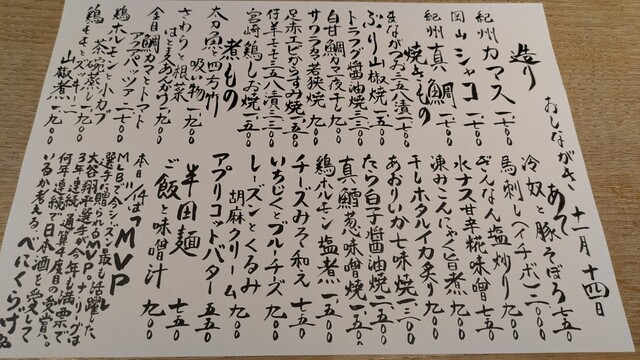 おしながき 十一月十四日
造り
紀州カマス 一、七〇〇
岡山シャコ 一、七〇〇
紀州真鯛 一、七〇〇
焼きもの
まながつお三五八漬 一、七〇〇
ぶり山椒焼 一、五〇〇
トラフグ醤油焼 三、三〇〇
白甘鯛カマ一夜干し 一、九〇〇
サワラ若狭焼 一、九〇〇
足赤エビからすみ焼 一、五〇〇
仔羊七十三五八漬 三、三〇〇
宮崎鶏しお焼 一、五〇〇
煮もの
太刀魚と四方竹
吸い物 一、九〇〇
さわらと根菜
はとむぎあんかけ 一、九〇〇
金目鯛カマトマト
アクアパッツァ 二、七〇〇
鶏ホルモンと小カブ
茶碗蒸し 九〇〇
鶏ももとズッキーニ
山椒煮 一、七〇〇
あて
冷奴と豚そぼろ 七五〇
馬刺し(イチボ) 二、三〇〇
ぎんなん塩炒り 九〇〇
水ナス甘辛糀味噌 七五〇
凍みこんにゃく旨煮 九〇〇
干しホタルイカ炙り 一、七〇〇
あおりいか七味焼 一、三〇〇
たら白子醤油焼 一、七〇〇
真鱈葱味噌焼 一、五〇〇
鶏ホルモン塩煮 一、一〇〇
チーズみそ和え 七五〇
いちじくとブルーチーズ 九〇〇
レーズンとくるみ
胡麻クリーム 九〇〇
アプリコットバター 五五〇
半田麺 七五〇
ご飯と味噌汁 九〇〇
本日イチは「MVP」
MLBで今シーズン最も活躍した
選手に贈られるMVP。ナ・リーグは
大谷翔平選手が今年も満票で
3年連続、通算4度目の受賞。
何年連続で日本酒を愛して
いるか考える、べにくらげぇ